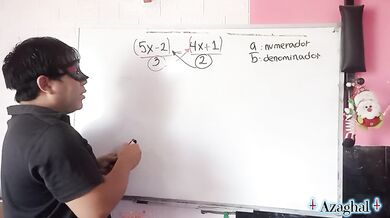 (5x-2) = (4x+1)
3 2
a : numerador
b : denominador
+ Azaghal +